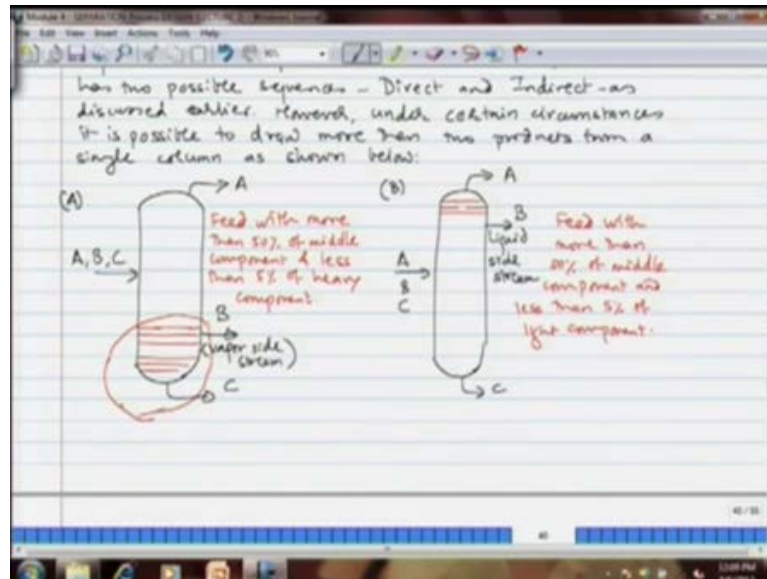 Module 4 - SEPARATION Process DESIGN LECTURE 2 - Windows Journal
File Edit View Insert Actions Tools Help
has two possible sequences - Direct and Indirect - as
discussed earlier. However, under certain circumstances
it is possible to draw more than two products from a
single column as shown below:
(A)
A
A, B, C
Feed with more
than 50% of middle
component & less
than 5% of heavy
component
B
(vapor side
stream)
C
(B)
A
A
B
C
B
Liquid
side
stream
Feed with
more than
50% of middle
component and
less than 5% of
light component.
C
40
12:09 PM